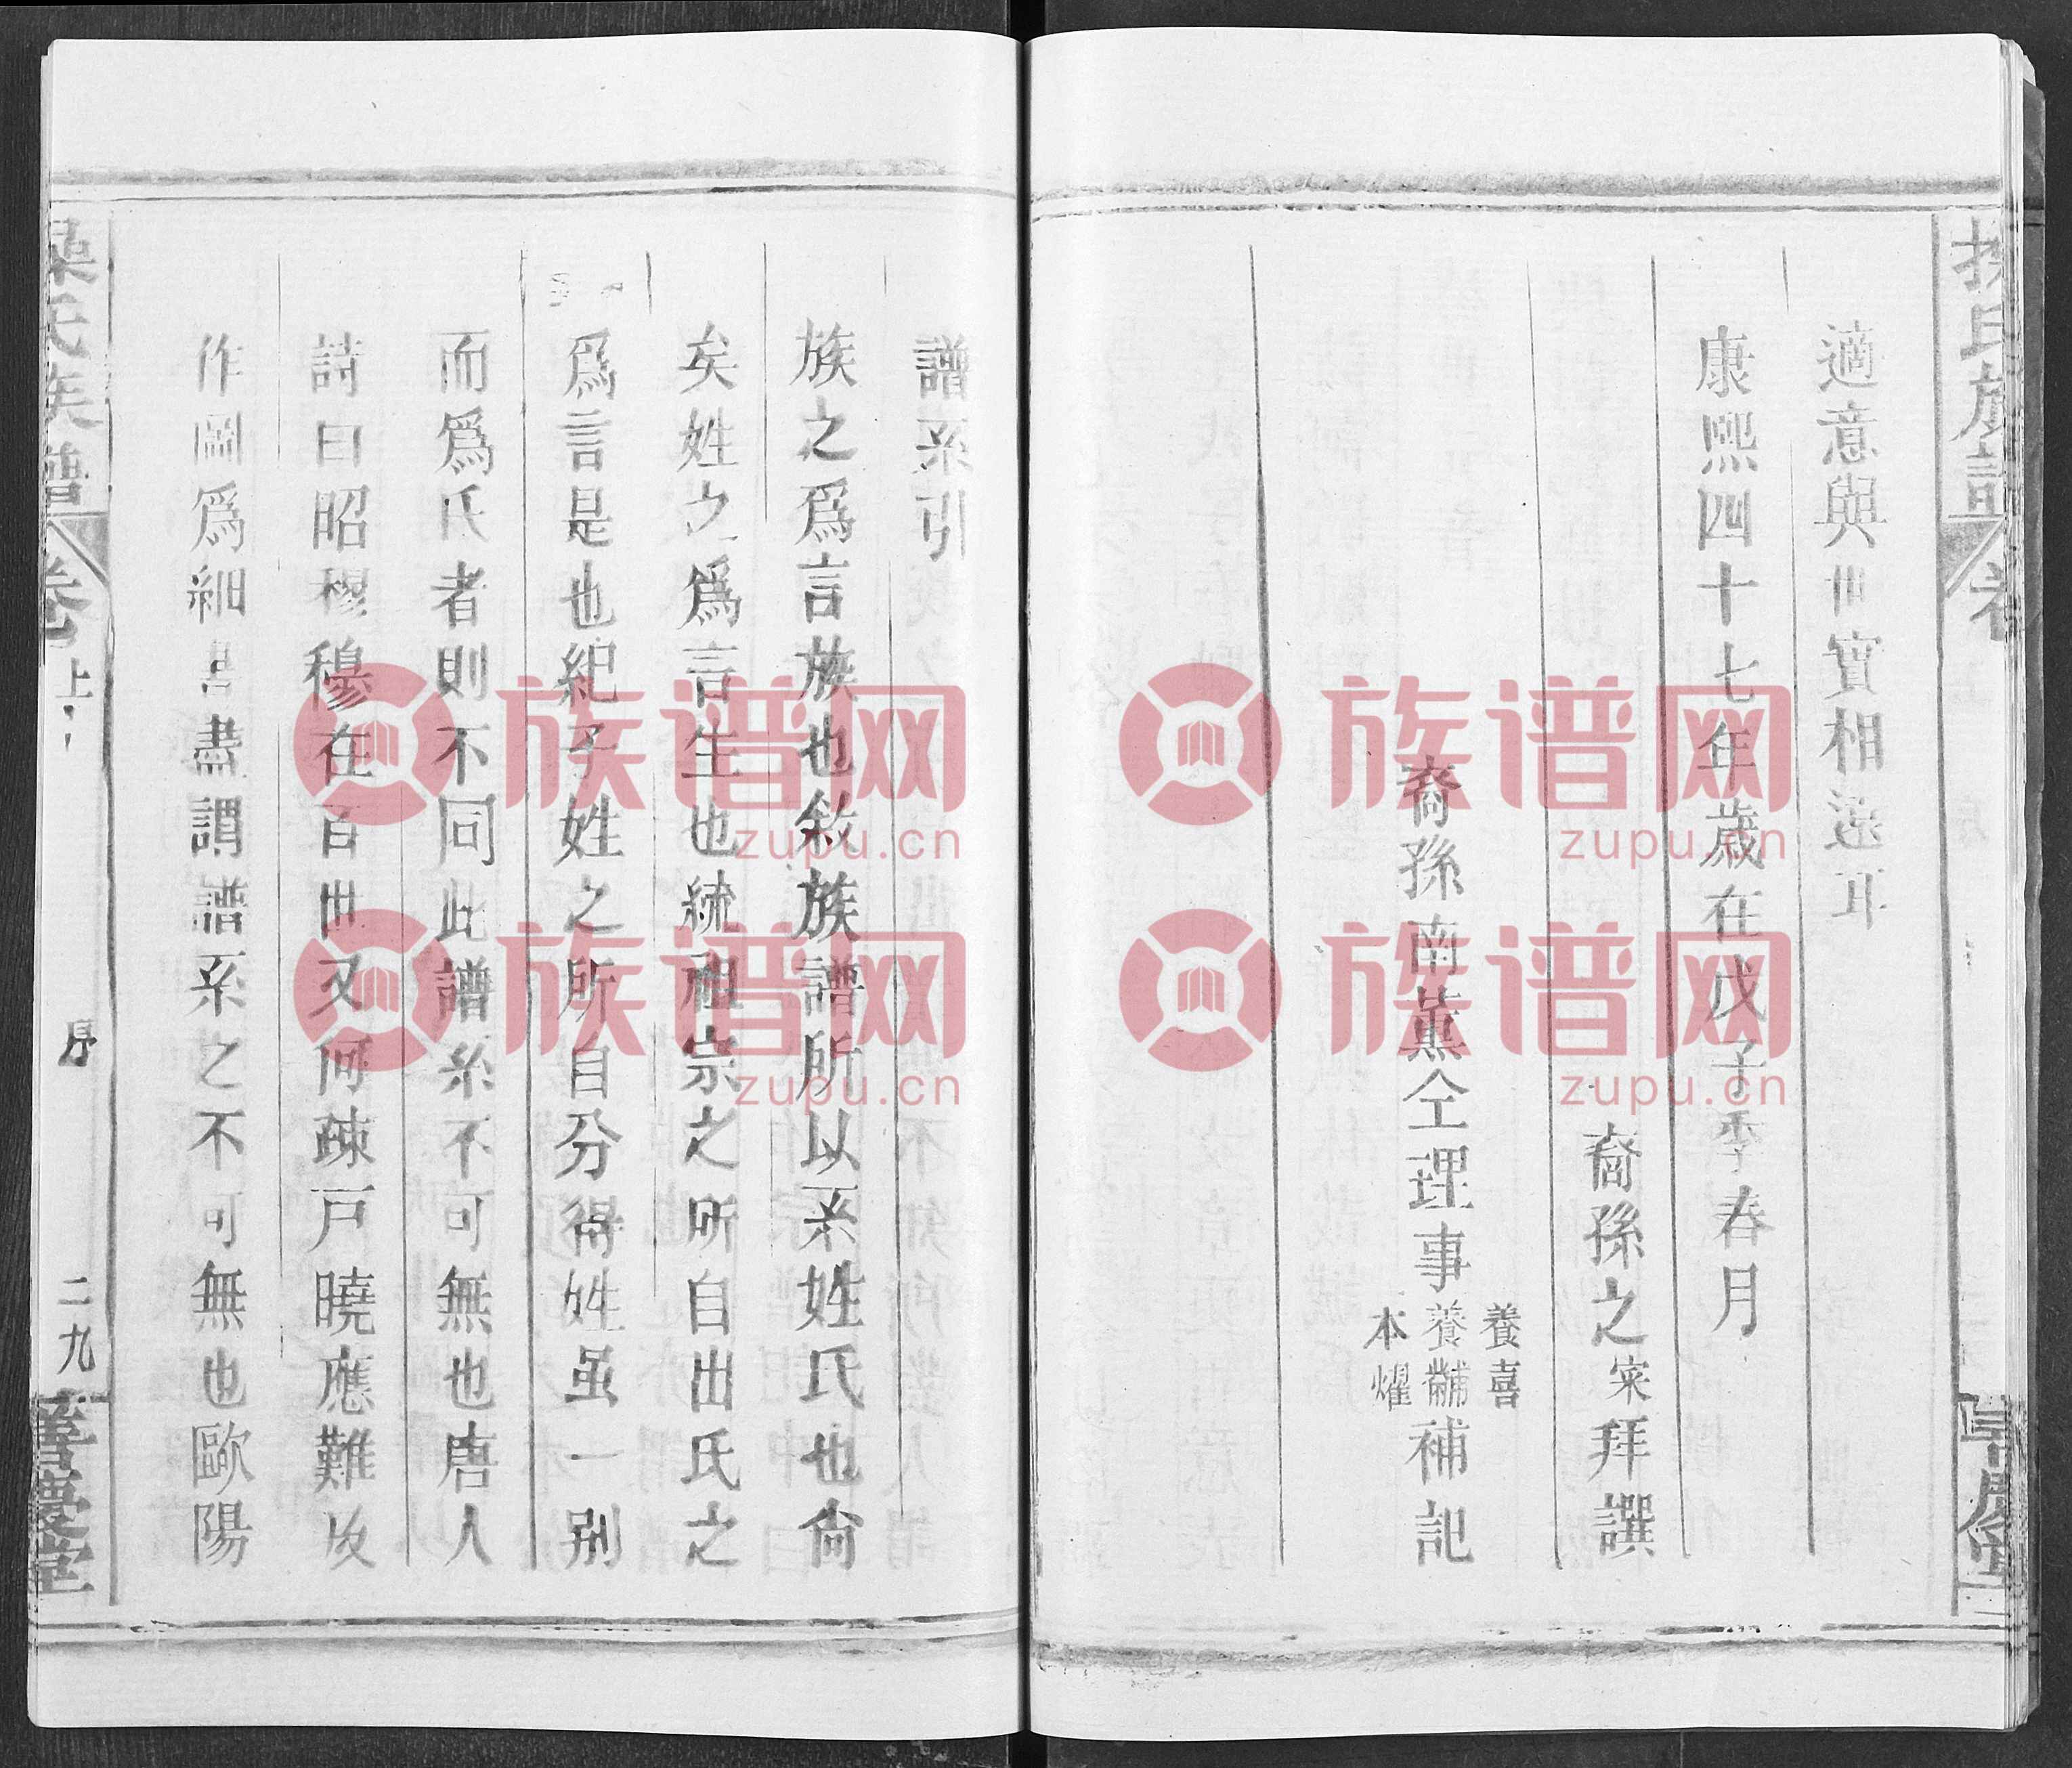 適意與世實相遠耳
康熙四十七年歲在戊子季春月
裔孫之寀拜譔
裔孫南薰仝理事
養喜
養黼
本燿
補記
譜系引
族之爲言族也敘族譜所以系姓氏也尙
矣姓之爲言生也統祖宗之所自出氏之
爲言是也紀子姓之所自分得姓虽一别
而爲氏者則不同此譜系不可無也唐人
詩曰昭穆穆在百世又何疎戸曉應難及
作圖爲細書盡謂譜系之不可無也歐陽
氏族譜
卷
上
序
二九
善慶堂
族谱网
zupu.cn
族谱网
zupu.cn
族谱网
zupu.cn
族谱网
zupu.cn